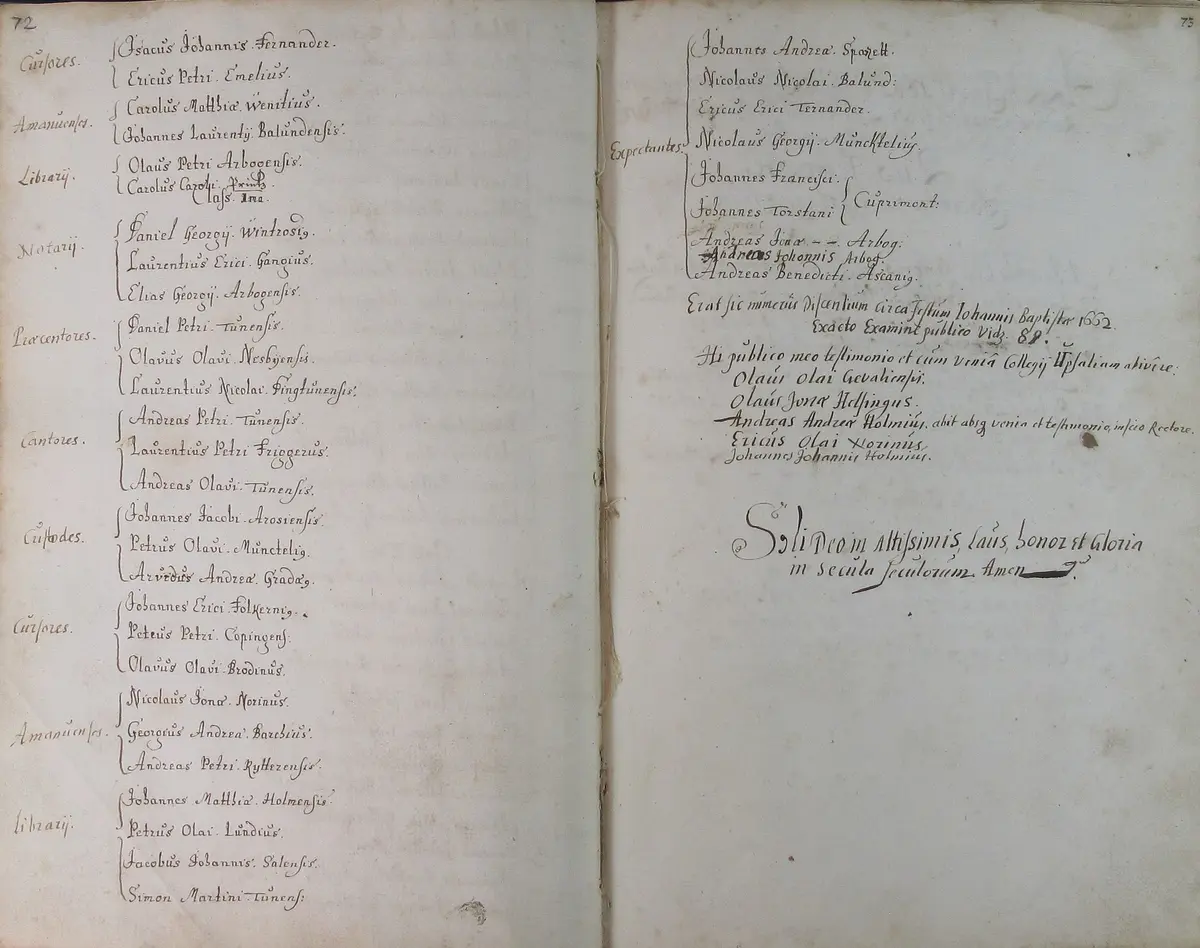 72
Cursores.
Isacus Johannis. Fernander.
Ericus Petri. Emelius.
Amanuenses.
Carolus Matthiæ. Wenitius.
Johannes Laurentij. Balundensis.
Librarij.
Olaus Petri Arbogensis.
Carolus Caroli. Printz.
Class. Ima.
Notarij.
Daniel Georgij. Wintrosig.
Laurentius Erici. Gangius.
Elias Georgij. Arbogensis.
Præcentores.
Daniel Petri. Tunensis.
Olavus Olavi. Nesbyensis.
Laurentius Nicolai. Tingtunensis.
Cantores.
Andreas Petri. Tunensis.
Laurentius Petri Friggerus.
Andreas Olavi. Tunensis.
Custodes.
Johannes Jacobi. Arosiensis.
Petrus Olavi. Munctelig.
Arvedus Andreæ. Gradæg.
Cursores.
Johannes Erici. Folkernig.
Peteus Petri. Copingens:
Olavus Olavi. Brodinus.
Amanuenses.
Nicolaus Jonæ. Norinus.
Georgius Andreæ. Barchius.
Andreas Petri. Rytterensis.
Librarij.
Johannes Matthiæ. Holmensis.
Petrus Olai. Lundius.
Jacobus Johannis. Salensis.
Simon Martini. Tunens:
73
Expectantes.
Johannes Andreæ. Sporett.
Nicolaus Nicolai. Balund:
Ericus Erici Ternander.
Nicolaus Georgij. Muncktelius.
Johannes Francisci.
Johannes Torstani
Cuprimont:
Andreas Jonæ - - . Arbog:
Andreas Johannis Arbog.
Andreas Benedicti. Ascanig.
Erat sic numerus Discentium circa festum Johannis Baptistæ 1662.
Exacto Examine publico Vidz.
Hi publico meo testimonio et cum veniâ Collegij Upsaliam abivere:
Olaus Olai Gevaliensis.
Olaus Jonæ Helsingus.
Andreas Andreæ Holmius, abit absq venia et testimonio, inscio Rectore.
Ericus Olai Norinus.
Johannes Johannis Holmius.
Soli Deo in Altissimis, Laus, honor et Gloria
in secula seculorum. Amen